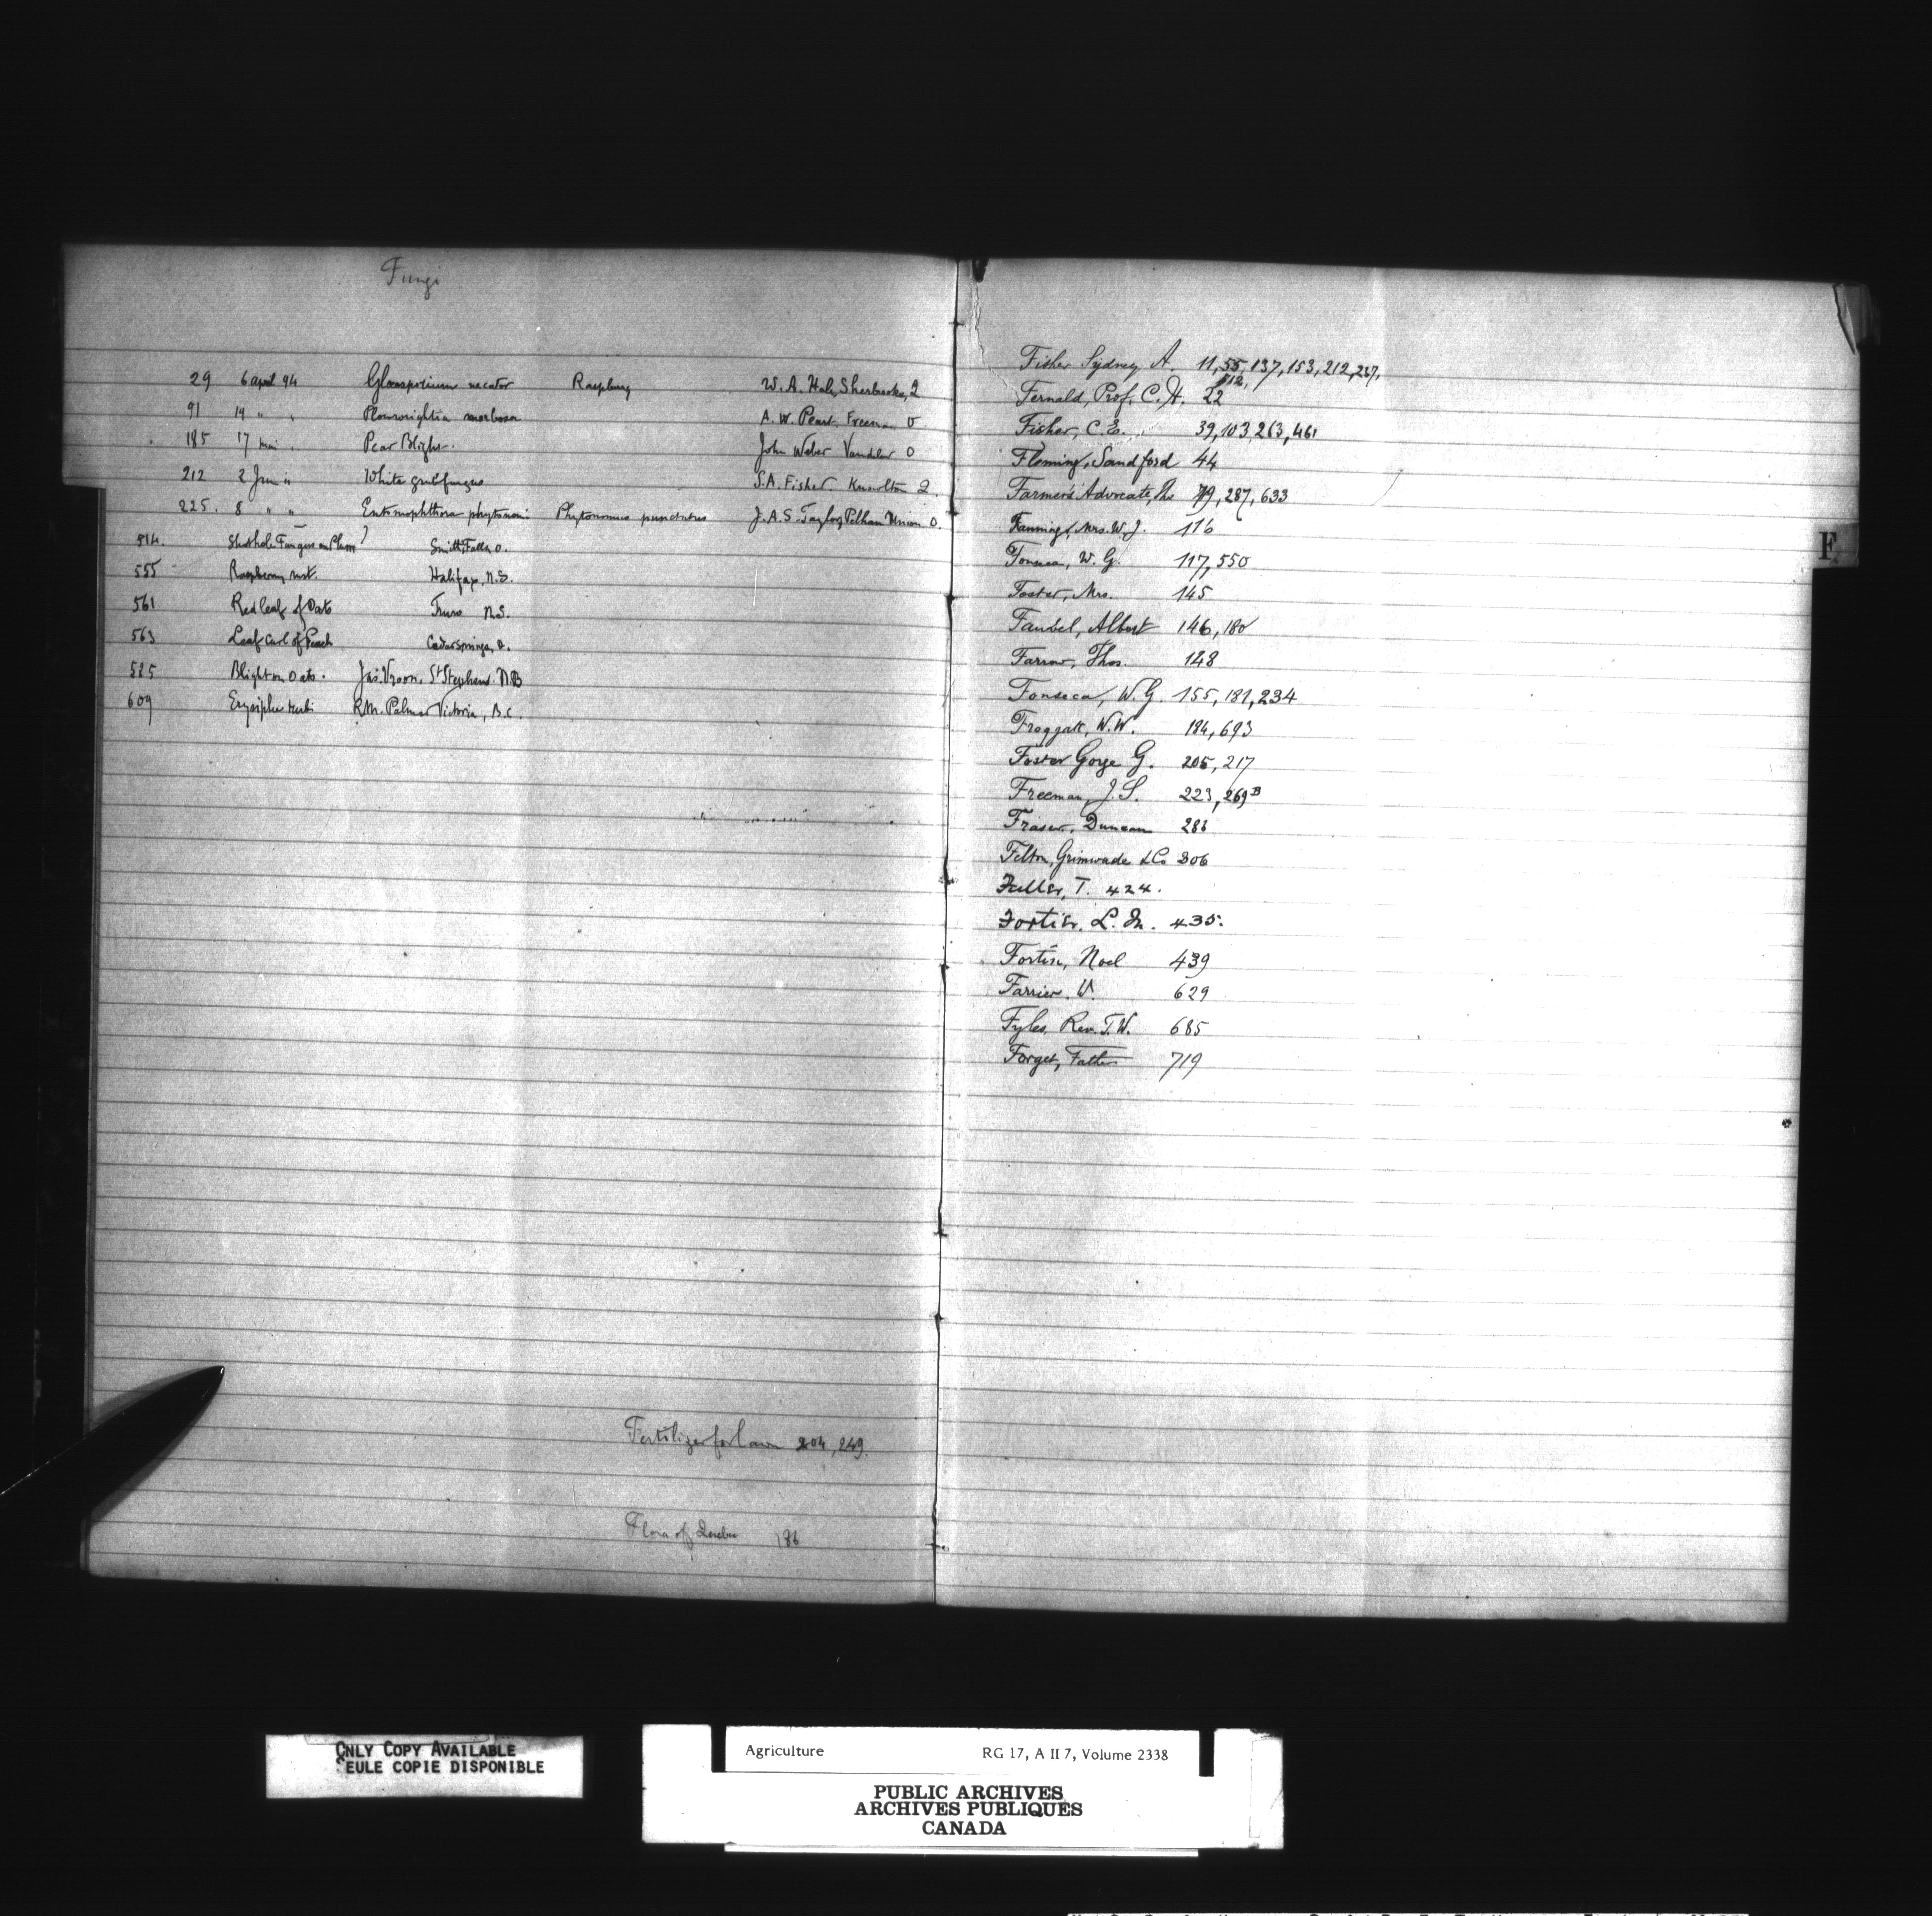 Fungi
29 6 april 94 Gloeosporium necator Raspberry W. A. Hale, Sherbrooke, Q
91 19 " " Plowrightia morbosa A. W. Peart, Freeman O
185 17 mai " Pear Blight. John Weber Vandeler O
212 2 Jun " White grub fungus S. A. Fisher. Knowlton Q.
225. 8 " " Entomophthora phytonomi Phytonomus punctatus J. A. S. Taylor, Pelham Union O.
514. Shothole Fungus on Plum? Smiths Falls, O.
555 Raspberry rust. Halifax, N.S.
561 Red leaf of Oats Truro N.S.
563 Leaf Curl of Peach Cedar Springs, O.
585 Blight on Oats. Jas. Vroom, St Stephens N.B
609 Erysiphe R.M. Palmer Victoria, B.C.
Fertilizer for lawn 204, 249.
Flora of Quebec 186
Fisher Sydney A. 11, 55, 137, 153, 212, 237,
512,
Fernald, Prof. C. H. 22
Fisher, C. E. 39, 103, 263, 461
Fleming, Sandford 44
Farmer's Advocate, The 79, 287, 633
Fanning, Mrs. W. J. 116
Fonseca, W. G. 117, 550
Foster, Mrs. 145
Faubel, Albert 146, 180
Farrow, Thos. 148
Fonseca, W. G. 155, 181, 234
Froggatt, W. W. 184, 693
Foster George G. 205, 217
Freeman, J. S. 223, 269B
Fraser, Duncan 286
Felton, Grimwade & Co 306
Fuller, T. 424.
Fortier, L. M. 435.
Fortin, Noel 439
Farrier. W. 629
Fyles, Rev. T. W. 685
Forget, Father 719
F
ONLY COPY AVAILABLE
SEULE COPIE DISPONIBLE
Agriculture RG 17, A II 7, Volume 2338
PUBLIC ARCHIVES
ARCHIVES PUBLIQUES
CANADA